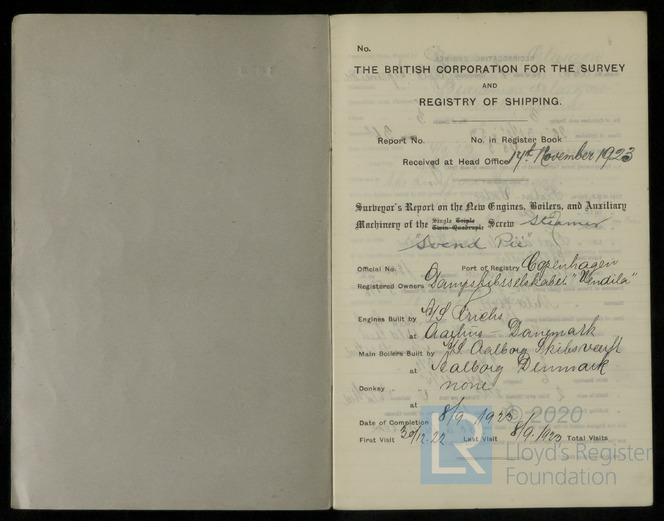 No.
THE BRITISH CORPORATION FOR THE SURVEY
AND
REGISTRY OF SHIPPING.
Report No. No. in Register Book
Received at Head Office 14th November 1923
Surveyor's Report on the New Engines, Boilers, and Auxiliary
Single Triple
Machinery of the Twin Quadruple Screw Steamer
"Svend Pii"
Official No. Port of Registry Copenhagen
Registered Owners Dampskibsselskabet "Vendila"
Engines Built by A/S Frichs
at Aarhus - Danemark
Main Boilers Built by A/S Aalborg Skibsværft
at Aalborg Denmark
Donkey none
at
Date of Completion 8/9 1923
First Visit 30/12.22 Last Visit 8/9.1923 Total Visits
© 2020
LR
Lloyd's Register
Foundation